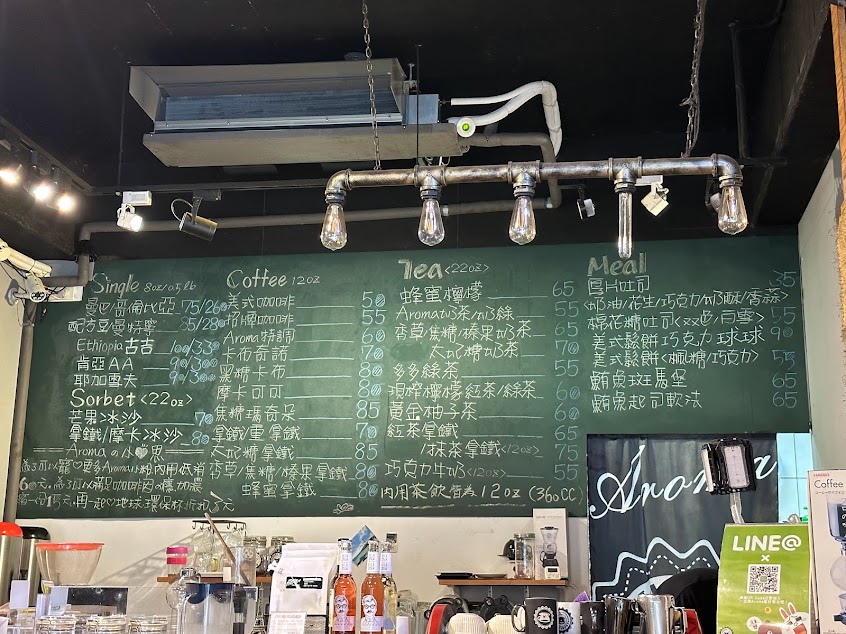 Single 8oz/0.5 lb
曼巴/哥倫比亞 75/26
配方豆/曼特寧 85/28
Ethiopia古吉
肯亞AA
耶加雪夫
Sorbet <22oz>
芒果冰沙 70
拿鐵/摩卡冰沙 80
Aroma の 小心思
Coffee 12oz
美式咖啡 50
招牌咖啡 55
Aroma特調 60
卡布奇諾 70
黑糖卡布 80
摩卡可可 80
焦糖瑪奇朵 85
拿鐵/重拿鐵 70
太妃糖拿鐵 85
香草/焦糖/榛果拿鐵 80
蜂蜜拿鐵 80
Tea <22oz>
蜂蜜檸檬 65
Aroma奶茶/奶綠 55
香草/焦糖/榛果奶茶 65
太妃糖奶茶 70
多多綠茶 55
現榨檸檬紅茶/綠茶 60
黃金柚子茶 60
紅茶拿鐵 65
/抹茶拿鐵<12oz> 75
巧克力牛奶<12oz> 55
內用茶飲皆為12oz (360CC)
Meal
厚片吐司 35
<奶油/花生/巧克力/奶酥/香蒜>
棉花糖吐司 55
美式鬆餅巧克力球球 90
美式鬆餅<楓糖/巧克力> 55
鮪魚斑馬堡 65
鮪魚起司軟法 65
Aroma
LINE@
×
HARIO
Coffee